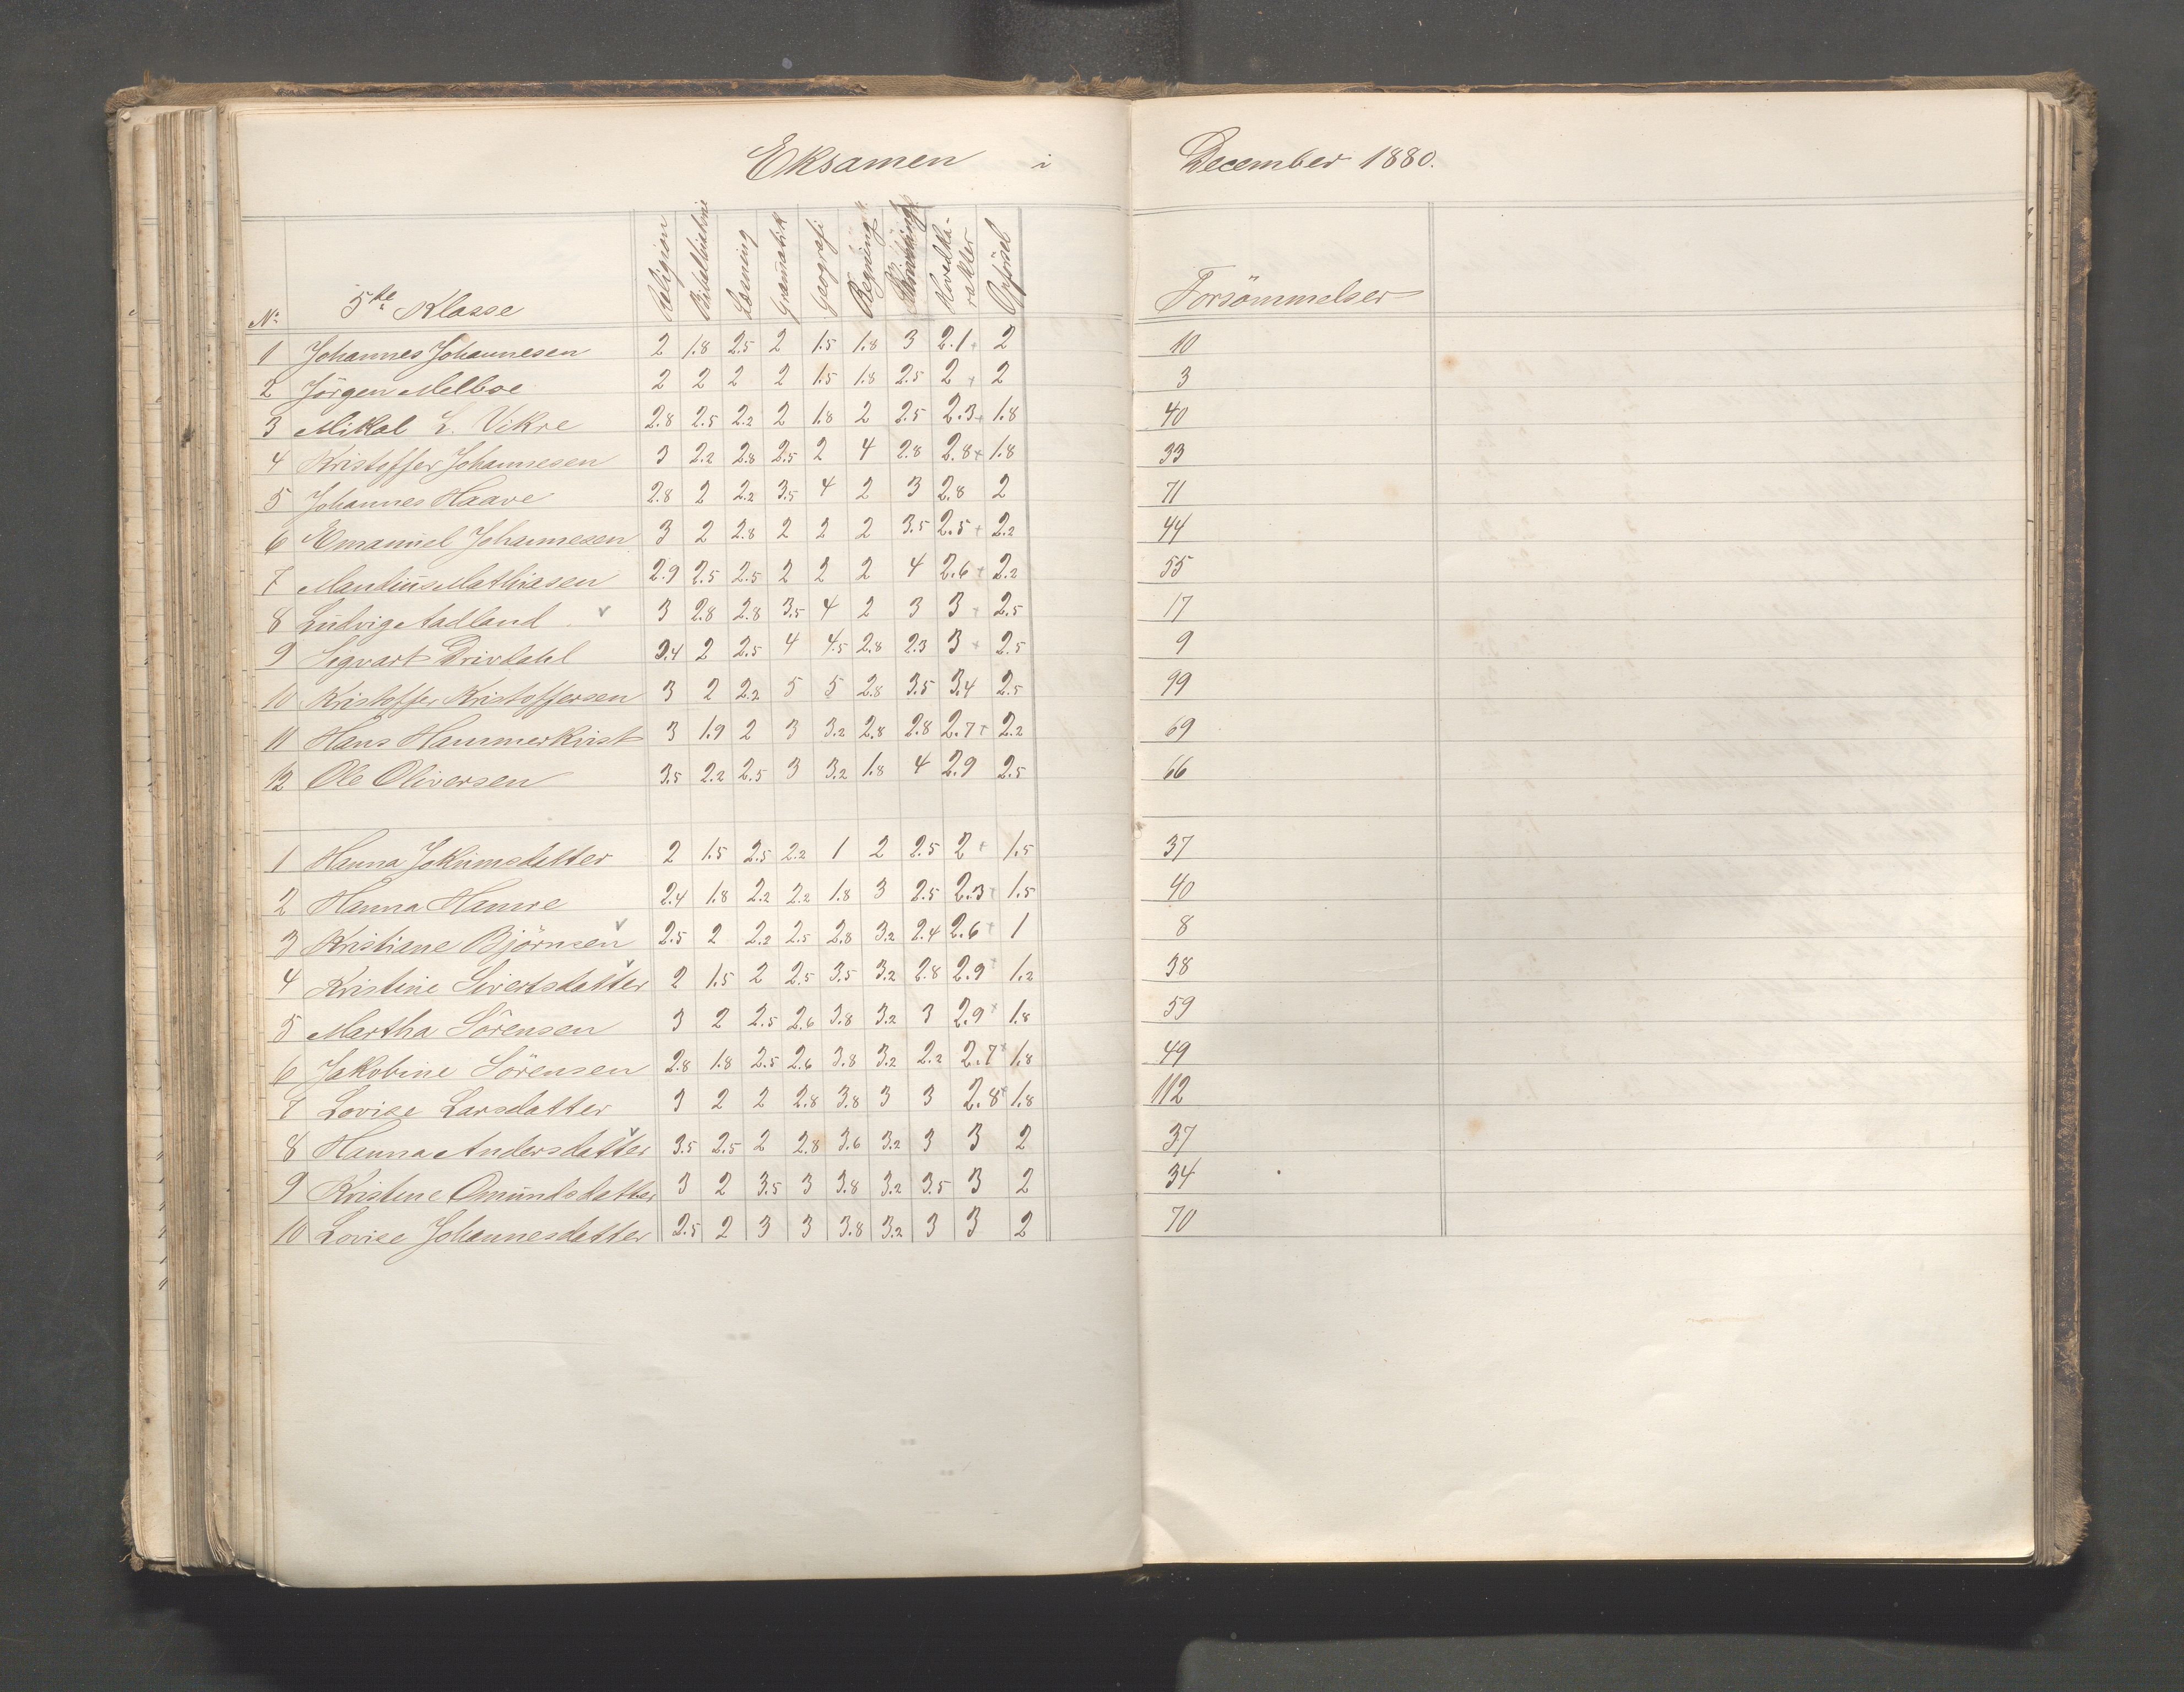 Eksamen i December 1880.
No 5te Klasse Religion Bibelhistorie Læsning Gramatik Geografi Regning Hovedkarakter Opførsel Forsömmelser
1 Johannes Johannesen 2 1.8 2.5 2 1.5 1.8 3 2.1+ 2 10
2 Jörgen Melboe 2 2 2 2 1.5 1.8 2.5 2+ 2 3
3 Mikal L. Vikre 2.8 2.5 2.2 2 1.8 2 2.5 2.3+ 1.8 40
4 Kristoffer Johannesen 3 2.2 2.8 2.5 2 4 2.8 2.8+ 1.8 33
5 Johannes Haave 2.8 2 2.2 3.5 4 2 3 2.8 2 71
6 Emanuel Johannesen 3 2 2.8 2 2 2 3.5 2.5+ 2.2 44
7 Mandius Mathiasen 2.9 2.5 2.5 2 2 2 4 2.6+ 2.2 55
8 Ludvig Aadland v 3 2.8 2.8 3.5 4 2 3 3+ 2.5 17
9 Sigvart Drivdahl 3.4 2 2.5 4 4.5 2.8 2.3 3+ 2.5 9
10 Kristoffer Kristoffersen 3 2 2.2 5 5 2.8 3.5 3.4 2.5 99
11 Hans Hammerkvist 3 1.9 2 3 3.2 2.8 2.8 2.7+ 2.2 69
12 Ole Oliversen 3.5 2.2 2.5 3 3.2 1.8 4 2.9 2.5 66
1 Hanna Jokumsdatter 2 1.5 2.5 2.2 1 2 2.5 2+ 1.5 37
2 Hanna Hamre 2.4 1.8 2.2 2.2 1.8 3 2.5 2.3+ 1.5 40
3 Kristiane Björnsen v 2.5 2 2.2 2.5 2.8 3.2 2.4 2.6+ 1 8
4 Kristine Sivertsdatter v 2 1.5 2 2.5 3.5 3.2 2.8 2.9+ 1.2 38
5 Martha Sörensen 3 2 2.5 2.6 3.8 3.2 3 2.9+ 1.8 59
6 Jakobine Sörensen 2.8 1.8 2.5 2.6 3.8 3.2 2.2 2.7+ 1.8 49
7 Lovise Larsdatter 3 2 2 2.8 3.8 3 3 2.8+ 1.8 112
8 Hanna Andersdatter v 3.5 2.5 2 2.8 3.6 3.2 3 3 2 37
9 Kristine Omundsdatter 3 2 3.5 3 3.8 3.2 3.5 3 2 34
10 Lovise Johannesdatter 2.5 2 3 3 3.8 3.2 3 3 2 70